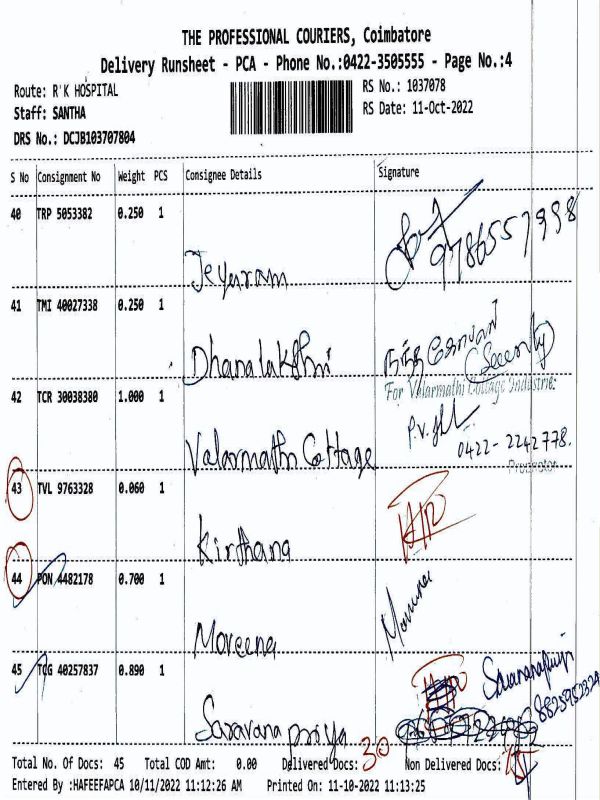 THE PROFESSIONAL COURIERS, Coimbatore
Delivery Runsheet - PCA - Phone No.:0422-3505555 - Page No.:4
Route: R'K HOSPITAL
RS No.: 1037078
Staff: SANTHA
RS Date: 11-Oct-2022
DRS No.: DCJB103707804
S No Consignment No Weight PCS Consignee Details Signature
40 TRP 5053382 0.250 1
9786557998
Jeyaram
41 TMI 40027338 0.250 1
Dhanalakshmi
(Security)
For Valarmathi Cottage Industries
42 TCR 30038380 1.000 1
0422-2242778.
Valarmathi Cottage
Proprietor
43 TVL 9763328 0.060 1
Kirthana
44 PON 4482178 0.700 1
Moveena
45 TCG 40257837 0.890 1
Saravana priya
Total No. Of Docs: 45 Total COD Amt: 0.00 Delivered Docs: 30 Non Delivered Docs:
Entered By :HAFEEFAPCA 10/11/2022 11:12:26 AM Printed On: 11-10-2022 11:13:25